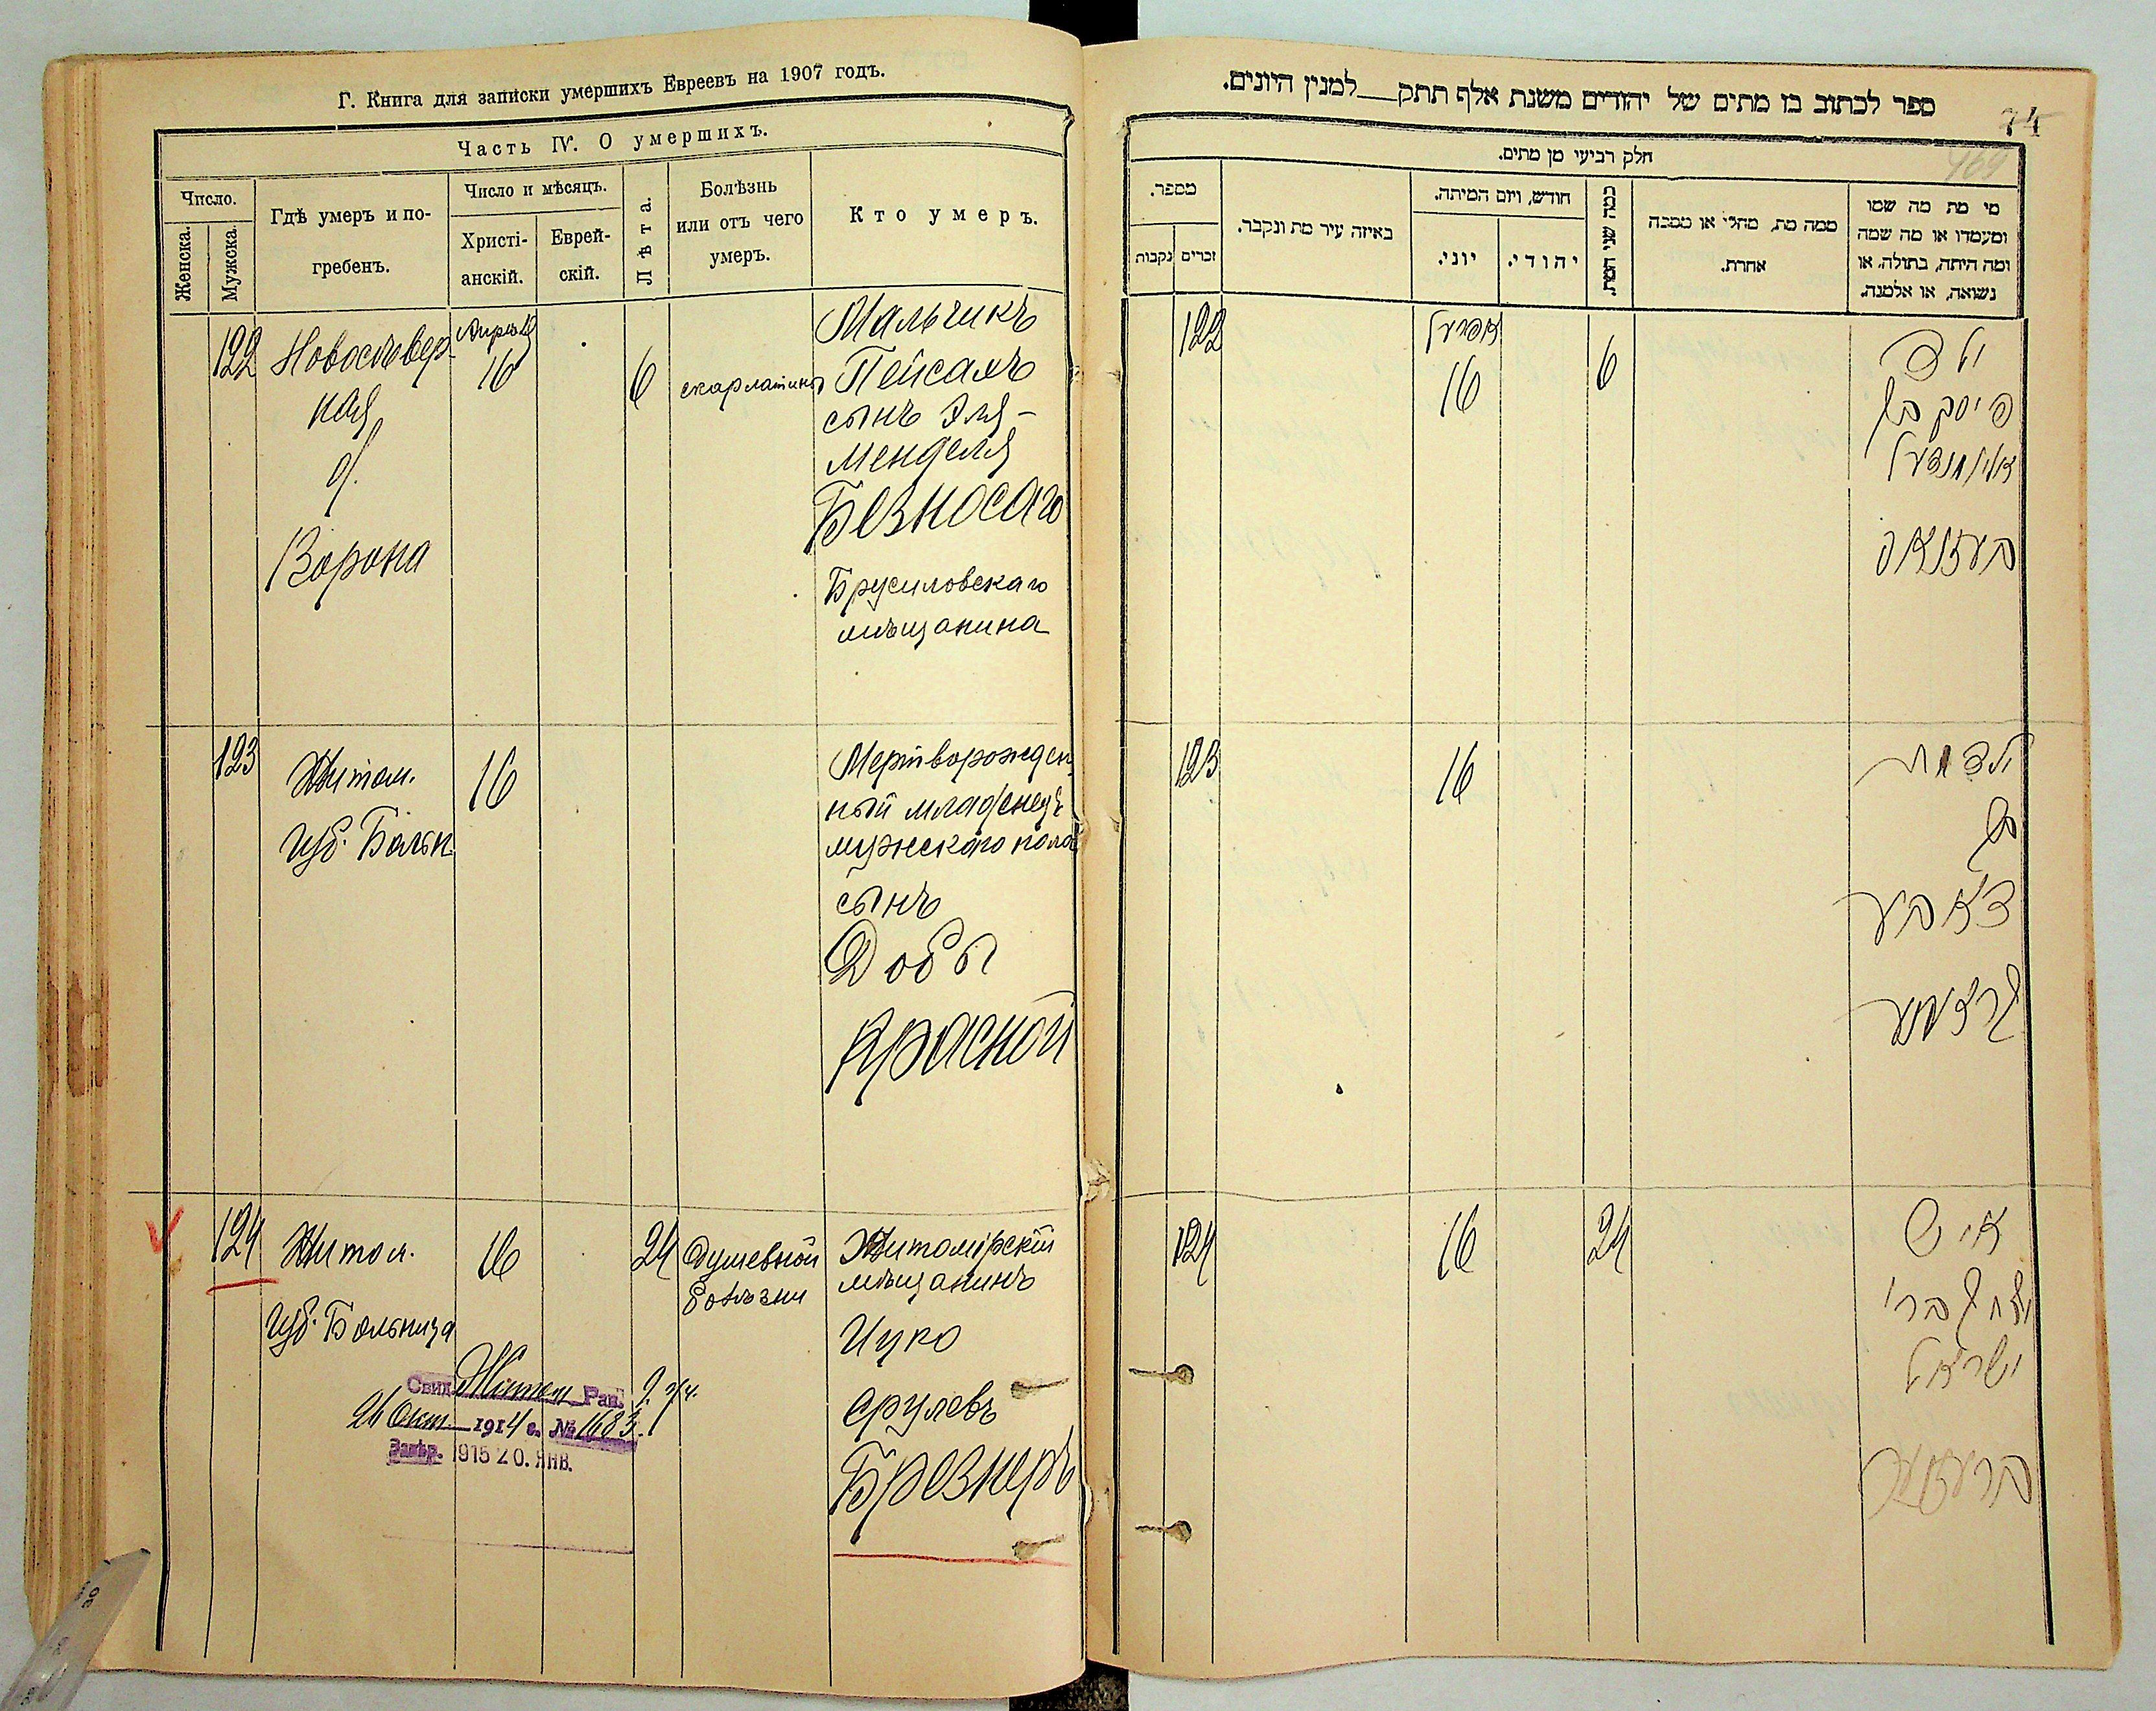 Г. Книга для записки умершихъ Евреевъ на 1907 годъ.
Часть IV. О умершихъ.
Число.
Женска.
Мужска.
Гдѣ умеръ и по-
гребенъ.
Число и мѣсяцъ.
Христі-
анскій.
Еврей-
скій.
Лѣта.
Болѣзнь
или отъ чего
умеръ.
Кто умеръ.
122
Новосѣвер-
ная
д.
Ворона
Апрѣль
16
6
скарлатины
Мальчикъ
Пейсахъ
сынъ Эля-
Менделя
Безносаго
Брусиловскаго
мѣщанина
123
Житом.
Губ. Больн.
16
Мертворожден-
ный младенецъ
мужескаго пола
сынъ
Добы
Красной
124
Житом.
Губ. Больница
16
24
Душевной
болѣзни
Житомірскій
мѣщанинъ
Ицко
Срулевъ
Брезнеръ
Свид. Житом. Рав.
26 Окт. 1914 г. № 1683.
Завѣр. 1915 20. ЯНВ.
ספר לכתוב בו מתים של יהודים משנת אלף תתק__למנין היונים.
74
469
חלק רביעי מן מתים.
מספר.
נקבות
זכרים
באיזה עיר מת ונקבר.
חודש, ויום המיתה.
יוני.
יהודי.
כמה שני המת.
ממה מת, מחלי או מסבה
אחרת.
מי מת מה שמו
ומעמדו או מה שמה
ומה היתה, בתולה, או
נשואה, או אלמנה.
122
אפריעל
16
6
ילד
פיסח בן
אלי' מענדעל
בעזנאס
123
16
ילד מת
בן
דאבע
קראסנע
124
16
24
איש
יצחק ברי
ישראל
ברעזנער